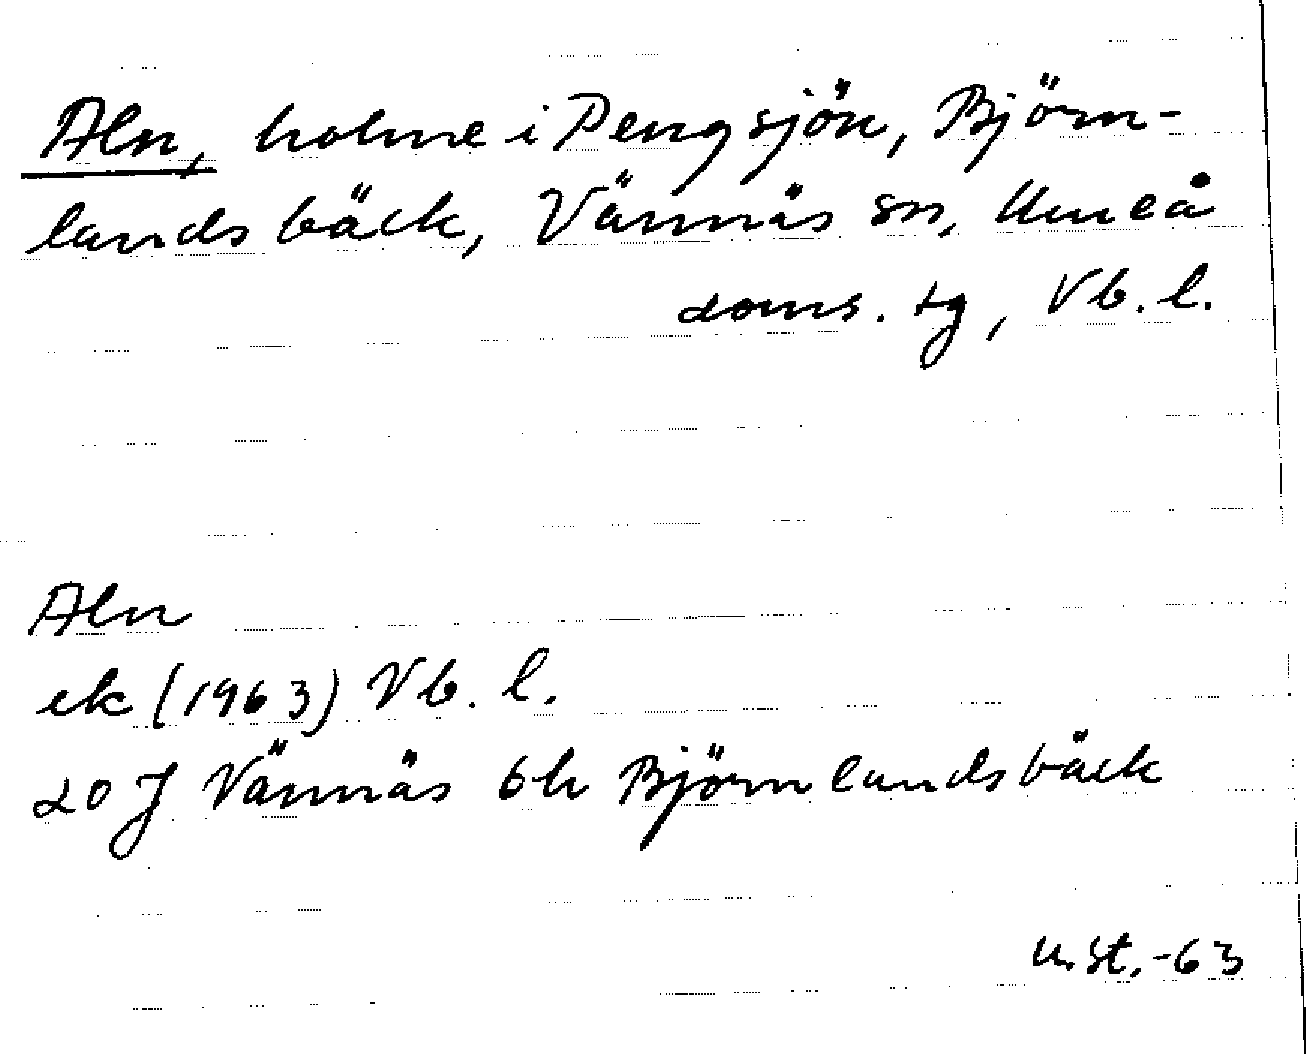 Aln, holme i Pengsjön, Björn-
landsbäck, Vännäs sn, Umeå
doms. tg, Vb. l.
Aln
ek (1963) Vb. l.
20 J Vännäs 6h Björnlandsbäck
u. St. -63